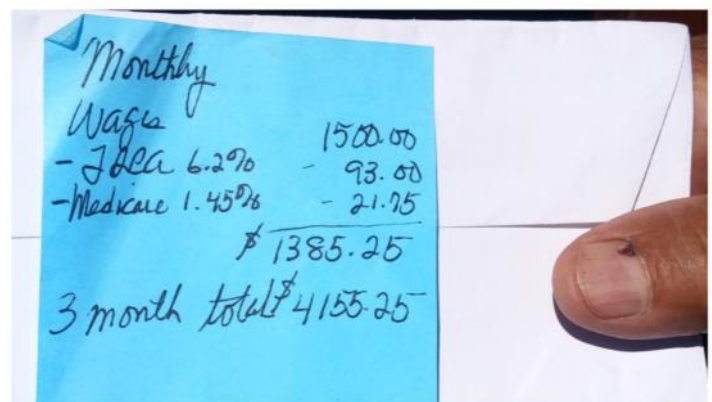 Monthly
Wages 1500.00
- FICA 6.2% - 93.00
- Medicare 1.45% - 21.75
$ 1385.25
3 month total $4155.25